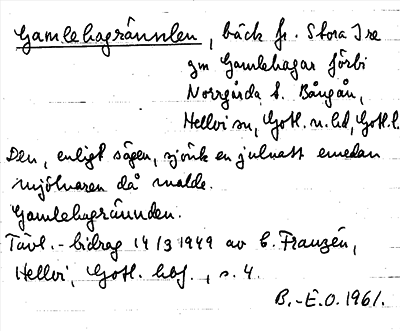 Gamlehagrännlen, bäck fr. Stora Ire
gm Gamlehagar förbi
Norrgårda t. Bångån,
Hellvi sn, Gotl. n. hd, Gotl. l.
Den, enligt sägen, sjönk en julnatt emedan
mjölnaren då malde.
Gamlehagrännden.
Tävl.-bidrag 14/3 1949 av E. Franzén,
Hellvi, Gotl. hbf., s. 4.
B.-E.O. 1961.